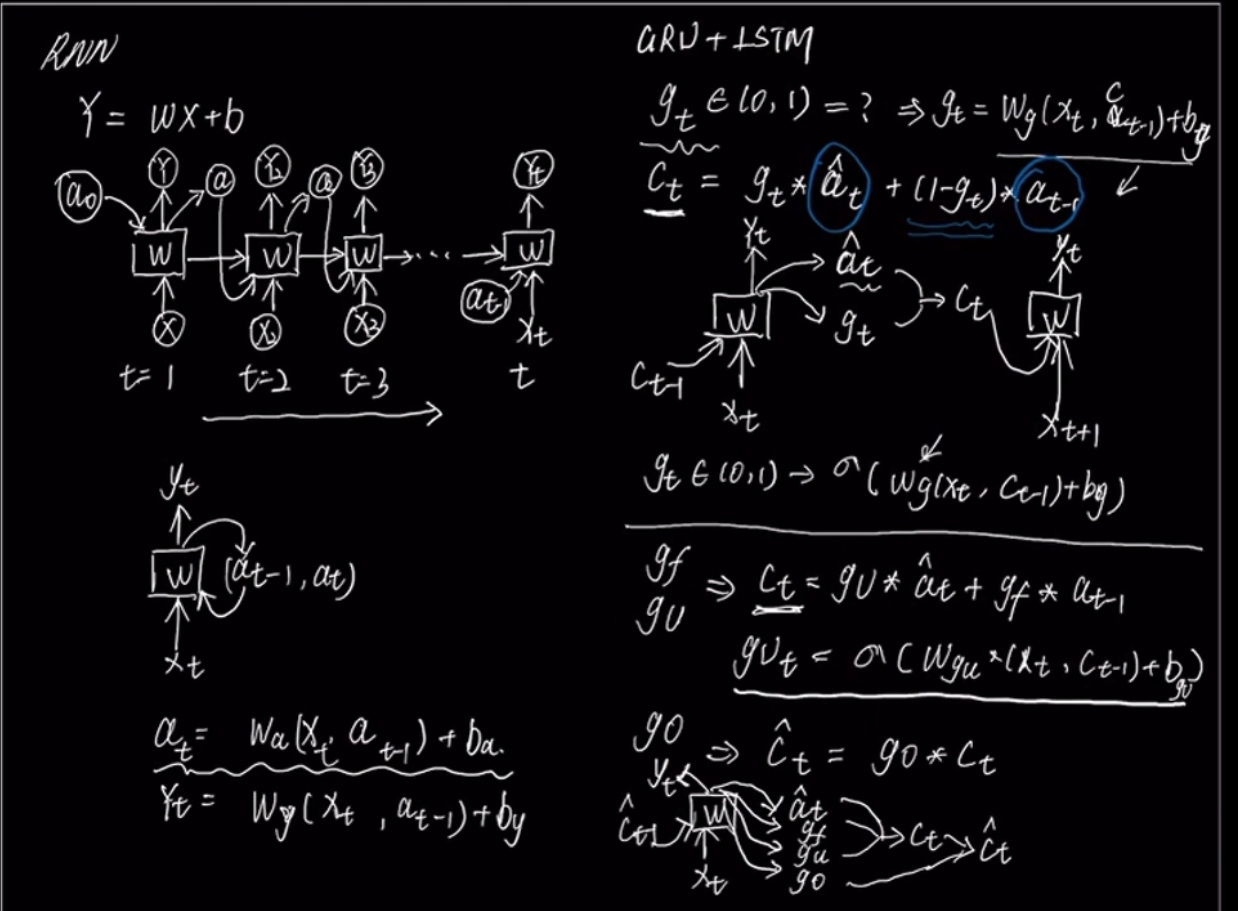 RNN
Y = WX+b
a₀ Y a Y₂ a₂ Y₃ Yt
W W W ... W
X X₂ X₃ at-1 Xt
t=1 t=2 t=3 t
yt
W (at-1, at)
xt
at = Wa(Xt, at-1)+ba.
Yt = Wy(Xt, at-1)+by
GRU+LSTM
gt ∈ (0,1) = ? ⇒ gt = Wg(Xt, Ct-1)+bg
Ct = gt * ât + (1-gt)* at-1
Yt ât yt
W gt Ct W
Ct-1 Xt Xt+1
gt ∈ (0,1) → σ(Wg(xt, Ct-1)+bg)
gf
gu ⇒ Ct = gu * ât + gf * at-1
gut = σ(Wgu*(Xt, Ct-1)+bgu)
go ⇒ Ĉt = go * Ct
Yt
Ĉt-1 W ât
gf Ct Ĉt
gu
Xt go